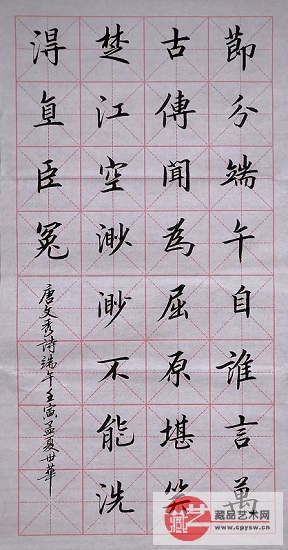 節分端午自誰言萬
古傳聞為屈原堪笑
楚江空渺渺不能洗
淂直臣冤
唐文秀詩端午壬寅孟夏世華
藏品艺术网
www.cpysw.cn